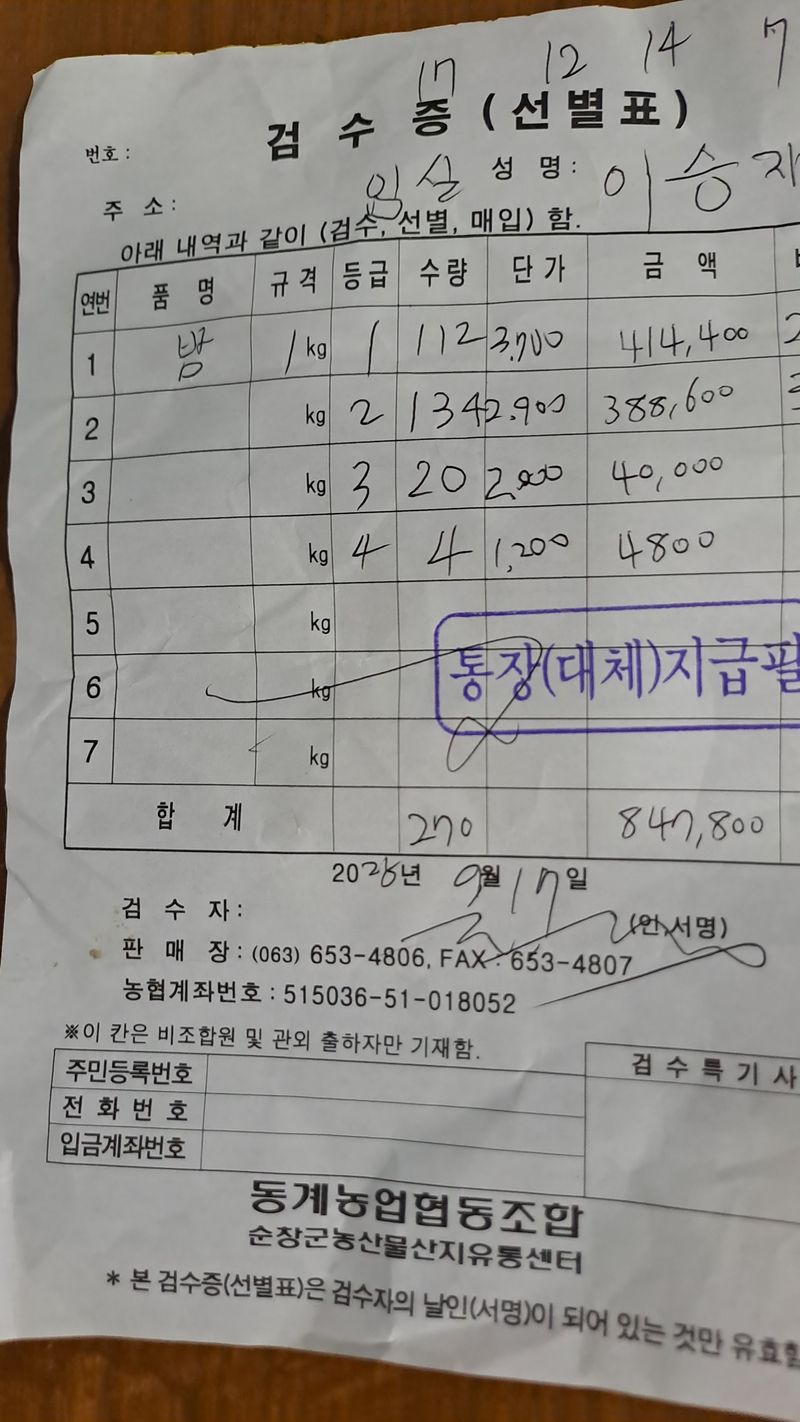 17 12 14 7
검 수 증 (선별표)
번호 :
주 소 : 임실 성 명 : 이승재
아래 내역과 같이 (검수, 선별, 매입) 함.
연번 품 명 규격 등급 수량 단가 금 액
1 밤 1 kg 1 112 3,700 414,400
2 kg 2 134 2,900 388,600
3 kg 3 20 2,000 40,000
4 kg 4 4 1,200 4800
5 kg
통장(대체)지급필
6 kg
7 kg
합 계 270 847,800
2026년 9월 17일
검 수 자 : (인,서명)
판 매 장 : (063) 653-4806, FAX : 653-4807
농협계좌번호 : 515036-51-018052
※이 칸은 비조합원 및 관외 출하자만 기재함.
주민등록번호 검 수 특 기 사
전 화 번 호
입금계좌번호
동계농업협동조합
순창군농산물산지유통센터
* 본 검수증(선별표)은 검수자의 날인(서명)이 되어 있는 것만 유효함